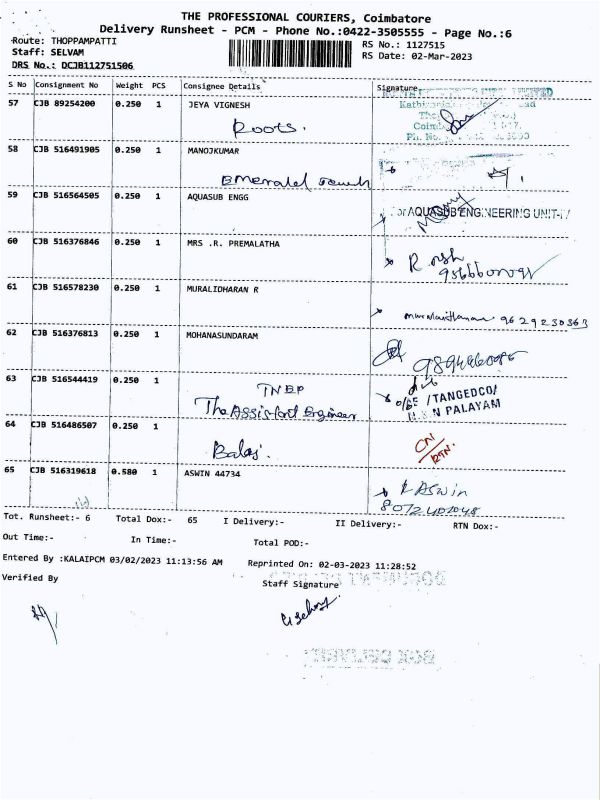 THE PROFESSIONAL COURIERS, Coimbatore
Delivery Runsheet - PCM - Phone No.:0422-3505555 - Page No.:6
Route: THOPPAMPATTI RS No.: 1127515
Staff: SELVAM RS Date: 02-Mar-2023
DRS No.: DCJB112751506
S No Consignment No Weight PCS Consignee Details Signature
57 CJB 89254200 0.250 1 JEYA VIGNESH
Roots.
58 CJB 516491905 0.250 1 MANOJKUMAR
Emerald
59 CJB 516564505 0.250 1 AQUASUB ENGG
For AQUASUB ENGINEERING UNIT-I
60 CJB 516376846 0.250 1 MRS .R. PREMALATHA
61 CJB 516578230 0.250 1 MURALIDHARAN R
9629230363
62 CJB 516376813 0.250 1 MOHANASUNDARAM
63 CJB 516544419 0.250 1 TNEB
The Assistant Engineer
O/BE /TANGEDCO/
PALAYAM
64 CJB 516486507 0.250 1
Balaj.
CN/
RTN.
65 CJB 516319618 0.580 1 ASWIN 44734
Aswin
Tot. Runsheet:- 6 Total Dox:- 65 I Delivery:- II Delivery:- RTN Dox:-
Out Time:- In Time:- Total POD:-
Entered By :KALAIPCM 03/02/2023 11:13:56 AM Reprinted On: 02-03-2023 11:28:52
Verified By Staff Signature